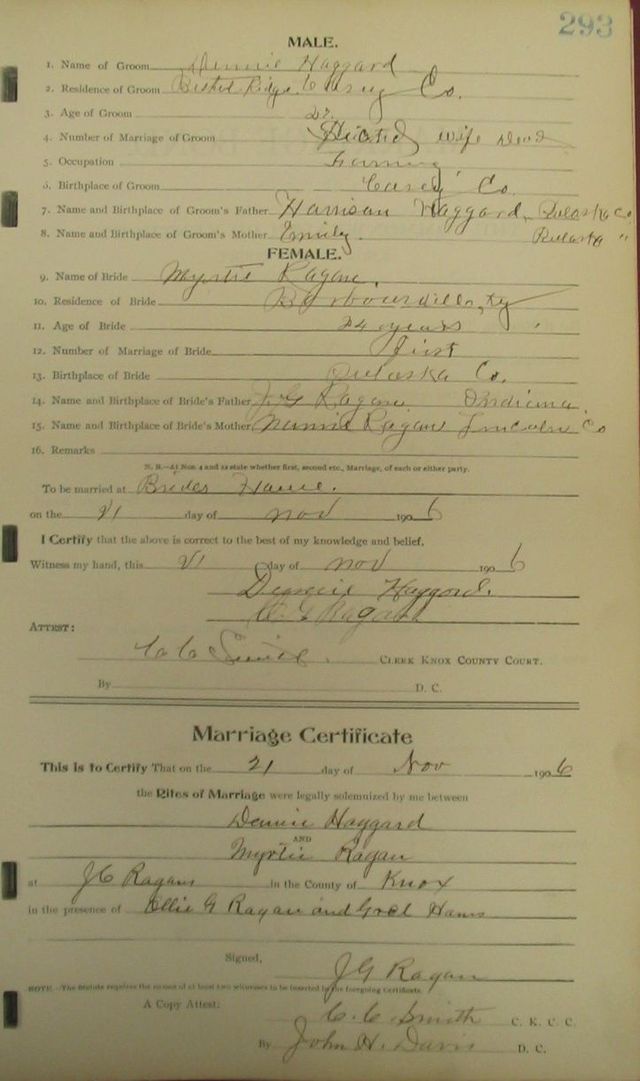 293
MALE.
1. Name of Groom Dennie Haggard
2. Residence of Groom Bethel Ridge Casey Co.
3. Age of Groom
4. Number of Marriage of Groom wife Dead
5. Occupation Farming
6. Birthplace of Groom Casey Co.
7. Name and Birthplace of Groom's Father Harrison Haggard, Pulaska Co
8. Name and Birthplace of Groom's Mother Emily Pulaska "
FEMALE.
9. Name of Bride Myrtie Ragan.
10. Residence of Bride Barbourville, Ky
11. Age of Bride 24 years
12. Number of Marriage of Bride First
13. Birthplace of Bride Pulaska Co.
14. Name and Birthplace of Bride's Father J G Ragan Indiana.
15. Name and Birthplace of Bride's Mother Nannie Ragan Lincoln Co
16. Remarks
N. B.—At Nos. 4 and 12 state whether first, second etc., Marriage, of each or either party.
To be married at Brides Home.
on the 21 day of Nov 1906
I Certify that the above is correct to the best of my knowledge and belief.
Witness my hand, this 21 day of Nov 1906
Dennie Haggard.
Ragan
ATTEST:
C C Smith. CLERK KNOX COUNTY COURT.
By D. C.
Marriage Certificate
This is to Certify That on the 21 day of Nov 1906
the Rites of Marriage were legally solemnized by me between
Dennie Haggard
AND
Myrtie Ragan
at J G Ragans in the County of Knox
in the presence of Ollie G Ragan and
Signed, J G Ragan
NOTE.—The Statute requires the names of at least two witnesses to be inserted in the foregoing Certificate.
A Copy Attest: C. C. Smith C. K. C. C.
By John H. Davis D. C.